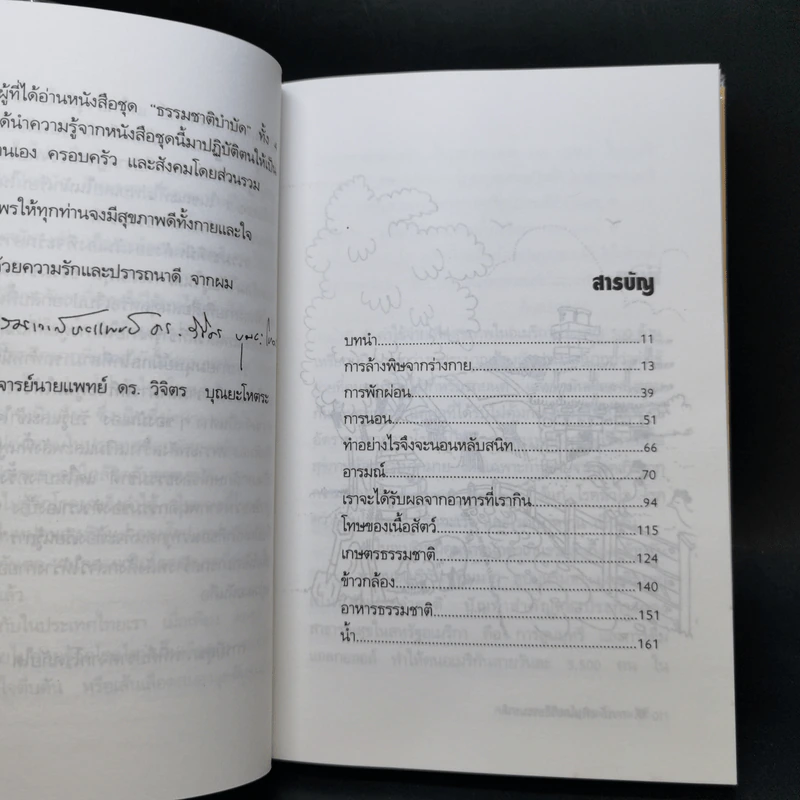 ผู้ที่ได้อ่านหนังสือชุด "ธรรมชาติบำบัด" ทั้ง
ด้นำความรู้จากหนังสือชุดนี้มาปฏิบัติตนให้เป็น
นเอง ครอบครัว และสังคมโดยส่วนรวม
พรให้ทุกท่านจงมีสุขภาพดีทั้งกายและใจ
้วยความรักและปรารถนาดี จากผม
จารย์นายแพทย์ ดร. วิจิตร บุณยะโหตระ
สารบัญ
บทนำ 11
การล้างพิษจากร่างกาย 13
การพักผ่อน 39
การนอน 51
ทำอย่างไรจึงจะนอนหลับสนิท 66
อารมณ์ 70
เราจะได้รับผลจากอาหารที่เรากิน 94
โทษของเนื้อสัตว์ 115
เกษตรธรรมชาติ 124
ข้าวกล้อง 140
อาหารธรรมชาติ 151
น้ำ 161